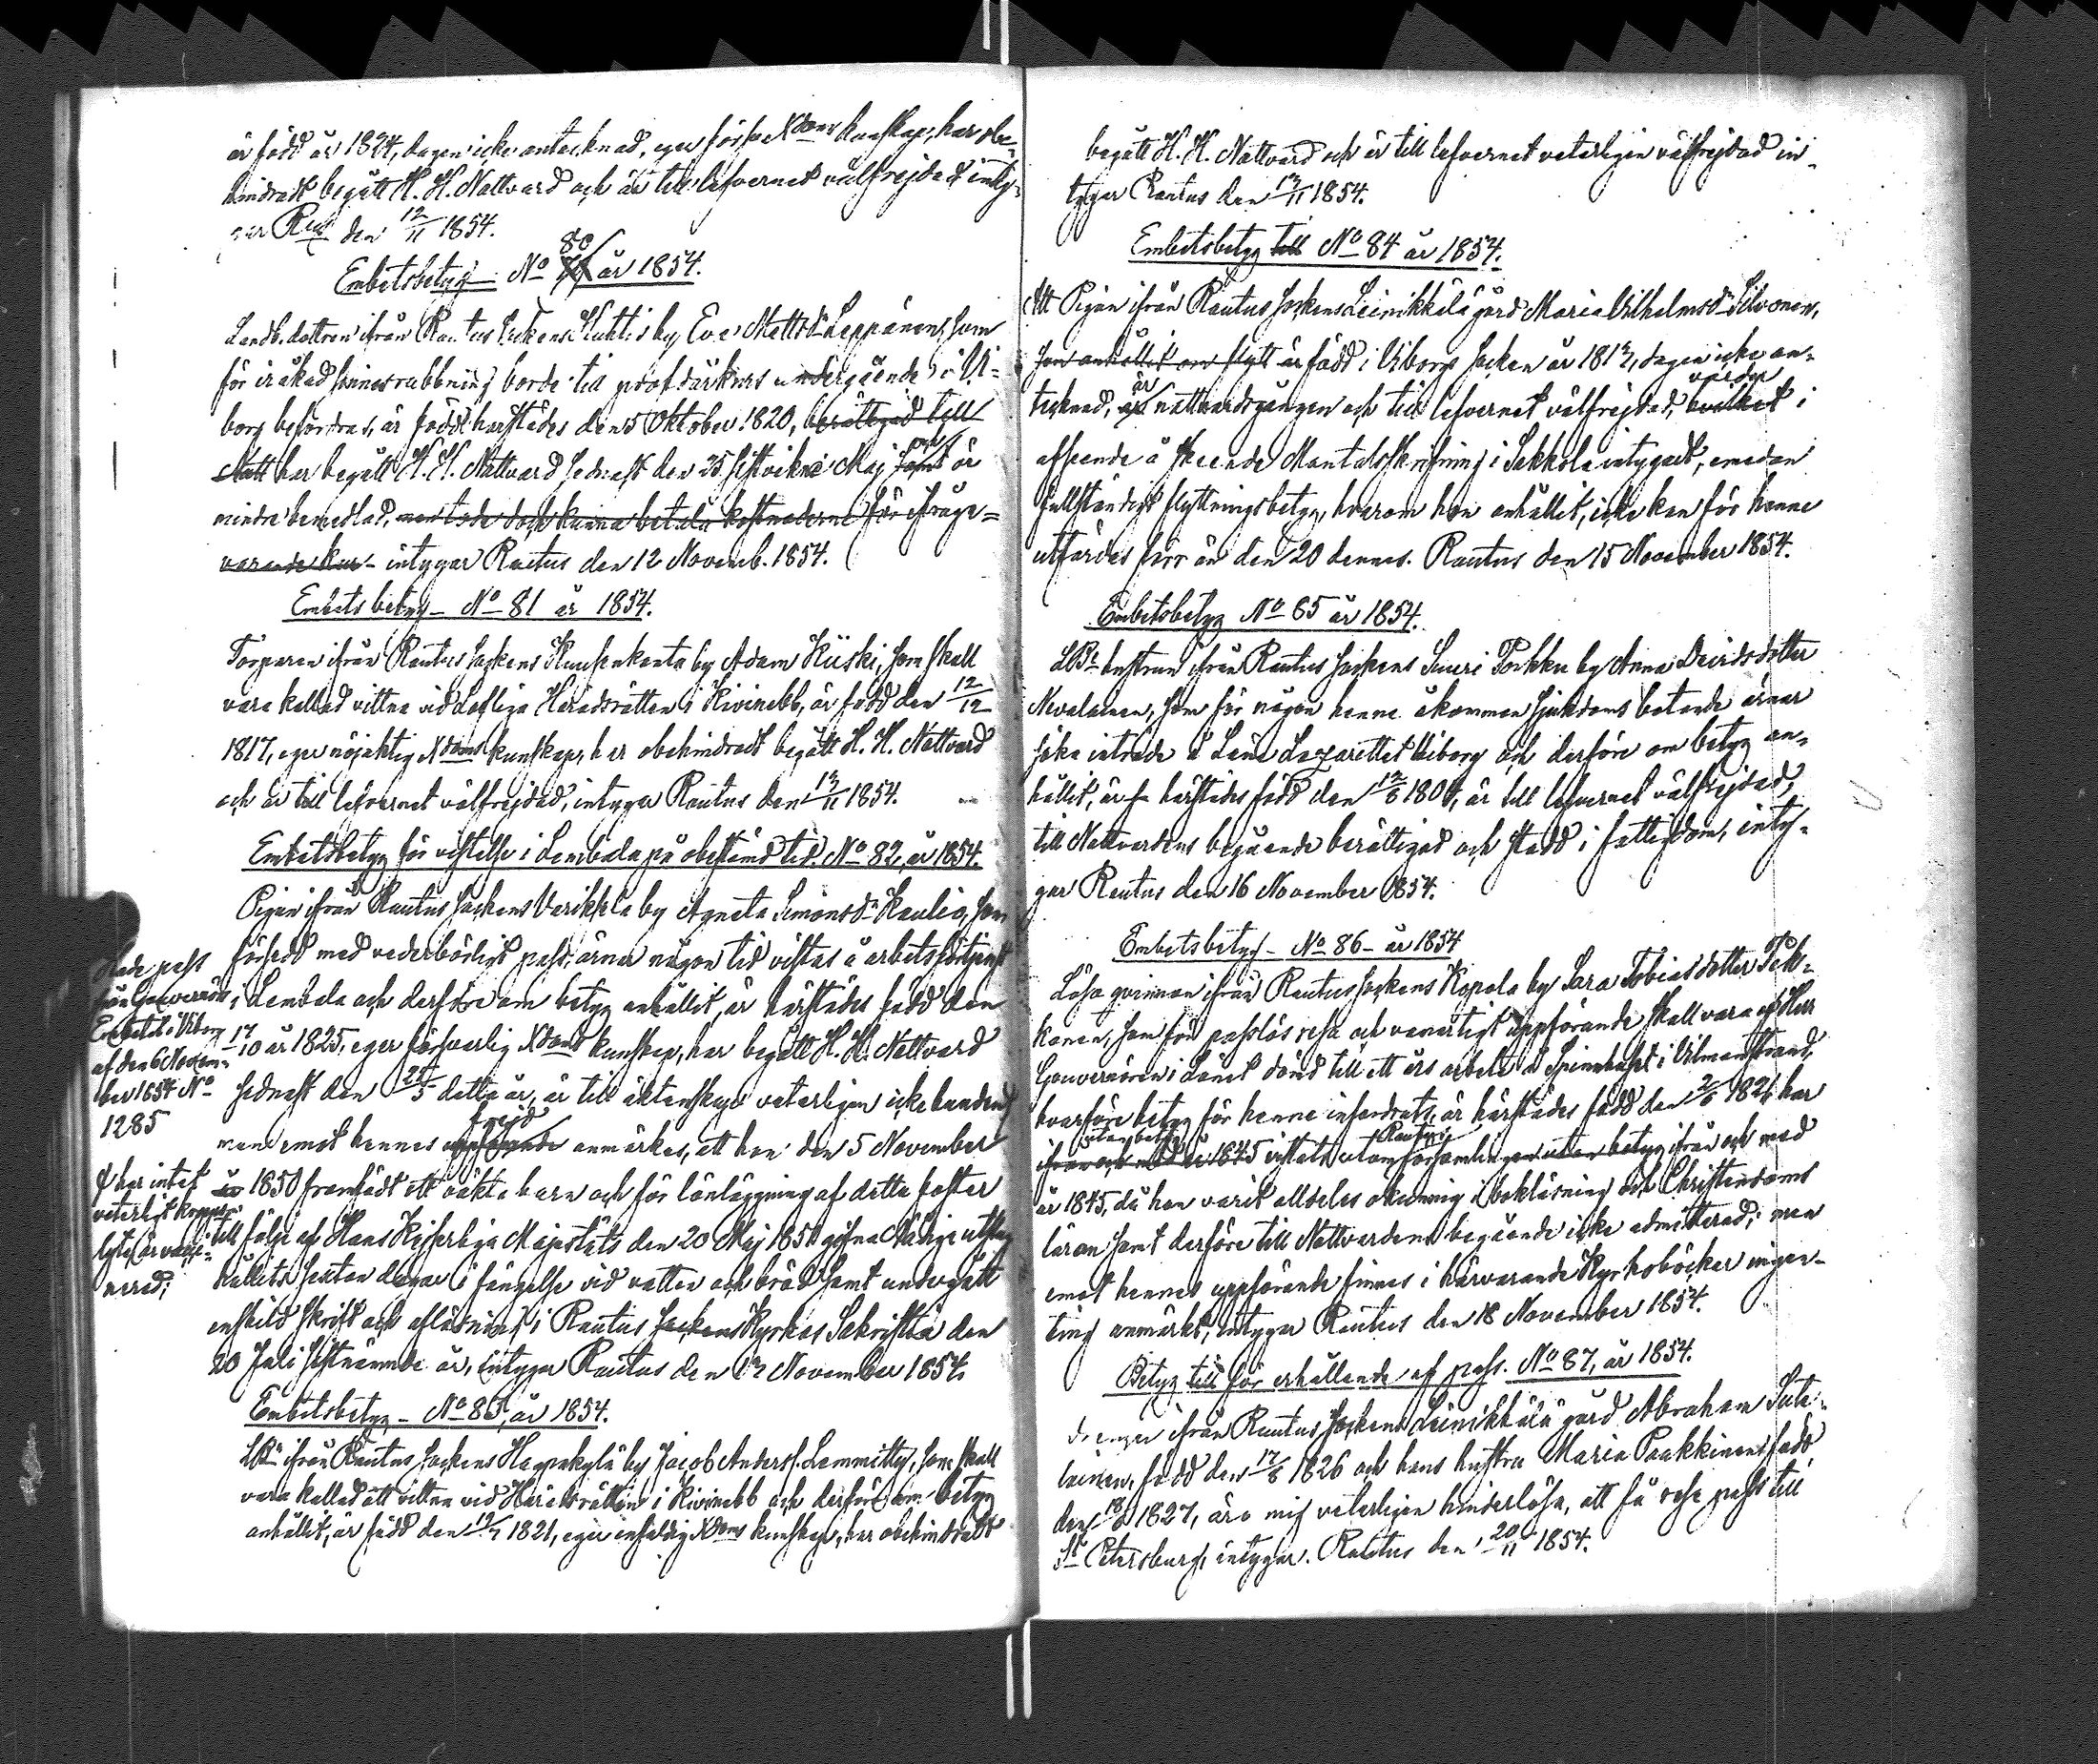 är född år 1824, dagen icke antecknad, eger förswl Xdoms kunskap, har obe-
hindradt begått H. H. Nattvard och är till lefvernet välfrejdad inty-
gar Rus den 12/11 1854.
Embetsbetyg No 80 år 1854.
Landb. dottren ifrån Rautus Sockens by Eva Mattsdr Leppänen, som
för iråkad sinnesrubbning borde till undergående i Wi-
borg befordras, är född härstädes den 5 Oktober 1820, berättigad till
Natt har begått H. H. Nattvard sednast den 25 sistvikne Maj samt är
mindre bemedlad, men torde dock kunna betala kostnaderne för ifråga-
varande kur - intygar Rautus den 12 Novemb. 1854.
Embetsbetyg - No 81 år 1854.
Torparen ifrån Rautus Sockens by Adam Kiiski, som skall
vara kallad vittne vid Lofliga Häradsrätten i Kivinebb, är född den 12/12
1817, eger nöjaktig Xdoms kunskap, har obehindradt begått H. H. Nattvard
och är till lefvernet välfrejdad, intygar Rautus den 13/11 1854.
Embetsbetyg för vistelse i Lembala på obestämd tid. No 82, år 1854.
Pigan ifrån Rautus Sockens Varikkela by Agneta Simonsdr Kaulio, som
försedd med vederbörligt pass, ärnar någon tid vistas å arbetsförtjenst
i Lembala och derföre om betyg anhållit, är härstädes född den
17/10 år 1825, eger försvarlig Xdoms kunskap, har begått H. H. Nattvard
sednast den 25/5 detta år, är till äktenskap veterligen icke bunden,
men emot hennes uppförande frejd anmärkes, att hon den 5 November
år 1850 framfödt ett oäkta barn och för lönläggning af detta foster
till följe af Hans Kejserliga Majestäts den 20 Maj 1851 gifna Nådiga utslag
hållits sexton dagar i fängelse vid vatten och bröd samt undergått
enskild skrift och aflösning i Rautus Sockens Kyrkas Sakristia den
20 Juli sistnämnde år, intygar Rautus den 13 November 1854.
Hade pass
från Gouvernörs
Embetet i Viborg
af den 6 Novem-
ber 1854 No
1285
har intet
veterligt kropps-
lyte, är vacci-
nerad;
Embetsbetyg - No 83, år 1854.
LBn ifrån Rautus Sockens Haapakylä by Jacob Anderss. Lammitty, som skall
vara kallad att vittna vid Häradsrätten i Kivinebb och derföre om betyg
anhållit, är född den 19/7 1821, eger enfaldig Xdoms kunskap, har obehindradt
begått H. H. Nattvard och är till lefvernet veterligen välfrejdad in-
tygar Rautus den 13/11 1854.
Embetsbetyg till No 84 år 1854.
Att Pigan ifrån Rautus Sockens Leinikkälä gård Maria Vilhelmsdr Silvonen,
som anhållit om flytt är född i Viborgs Socken år 1813, dagen icke an-
tecknad, är nattvardsgången och till lefvernet välfrejdad, hvilket varder i
afseende å skeende Mantalsskrifning i Sakkola intygadt, emedan
fullständigt flyttningsbetyg, hvarom hon anhållit, icke kan för henne
utfärdas förr än den 20 dennes. Rautus den 15 November 1854.
Embetsbetyg No 85 år 1854.
LBs hustrun ifrån Rautus Sockens Suuri Porkku by Anna Davidsdotter
Nevalainen, som för någon henne åkommen sjukdoms botande ärnar
söka inträde å Läns Lazarettet Viborg och derföre om betyg an-
hållit, är härstädes född den 12/8 1804, är till lefvernet välfrejdad,
till Nattvardens begående berättigad och stadd i fattigdom, inty-
gar Rautus den 16 November 1854.
Embetsbetyg - No 86 - år 1854
Lösa qvinnan ifrån Rautus Sockens Kopala by Sara Tobiasdotter Pek-
kanen, som för passlös resa och vanartigt uppförande skall vara af Herr
Gouvernören i Länet dömd till ett års arbete å Spinnhuset i Vilmanstrand,
hvarföre betyg för henne infordrats, är härstädes född den 2/8 1821 har
utan betyg Rautus
ifrån och med år 1845 vistats utom församlingen utan betyg ifrån och med
år 1845, då hon varit alldeles okunnig i bokläsning och Christendoms
läran samt derföre till Nattvardens begående icke admitterad; men
emot hennes uppförande finnes i härvarande Kyrkoböcker ingen-
ting anmärkt, intygar Rautus den 18 November 1854.
Betyg till för erhållande af pass. No 87, år 1854.
Drengen ifrån Rautus Sockens Leinikkälä gård Abraham Suta-
lainen, född den 17/8 1826 och hans hustru Maria Paakkinen, född
den 18/2 1827, äro mig veterligen hinderlösa, att få resepass till
St Petersburg, intygar. Rautus den 20/11 1854.